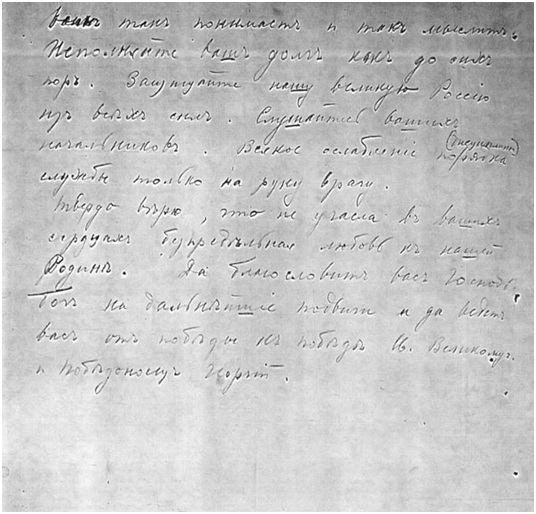 такъ понимаетъ и такъ мыслитъ.
Исполняйте вашъ долгъ какъ до сихъ
поръ. Защищайте нашу великую Россію
изъ всѣхъ силъ. Слушайтесь вашихъ
начальниковъ. Всякое ослабленіе порядка
службы только на руку врагу.
Твердо вѣрю, что не угасла въ вашихъ
сердцахъ безпредѣльная любовь къ нашей
Родинѣ. Да благословитъ васъ Господь
Богъ на дальнѣйшіе подвиги и да ведетъ
васъ отъ побѣды къ побѣдѣ Св. Великомуч.
и Побѣдоносецъ Георгій.